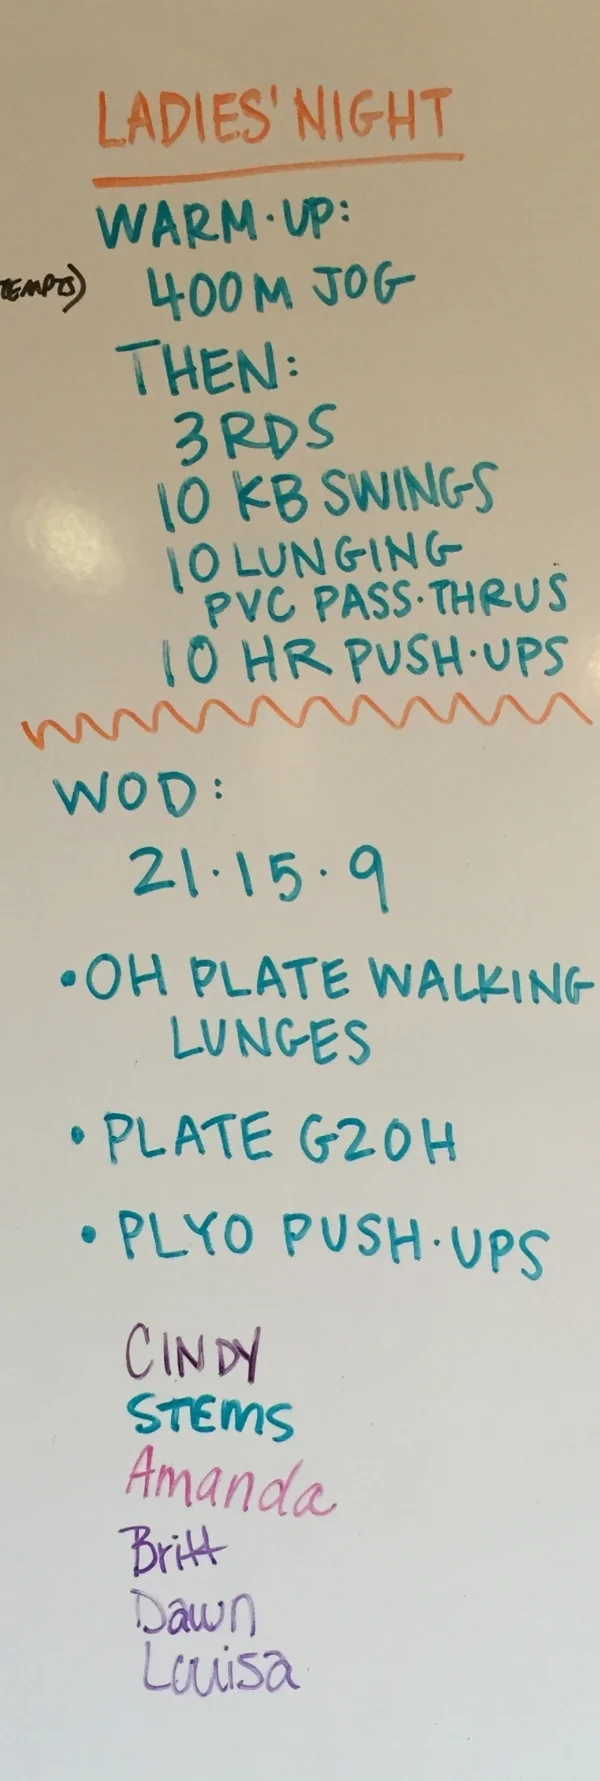 LADIES' NIGHT
WARM·UP:
400M JOG
THEN:
3 RDS
10 KB SWINGS
10 LUNGING
PVC PASS·THRUS
10 HR PUSH·UPS
WOD:
21·15·9
•OH PLATE WALKING
LUNGES
• PLATE G2OH
• PLYO PUSH·UPS
CINDY
STEMS
Amanda
Britt
Dawn
Louisa